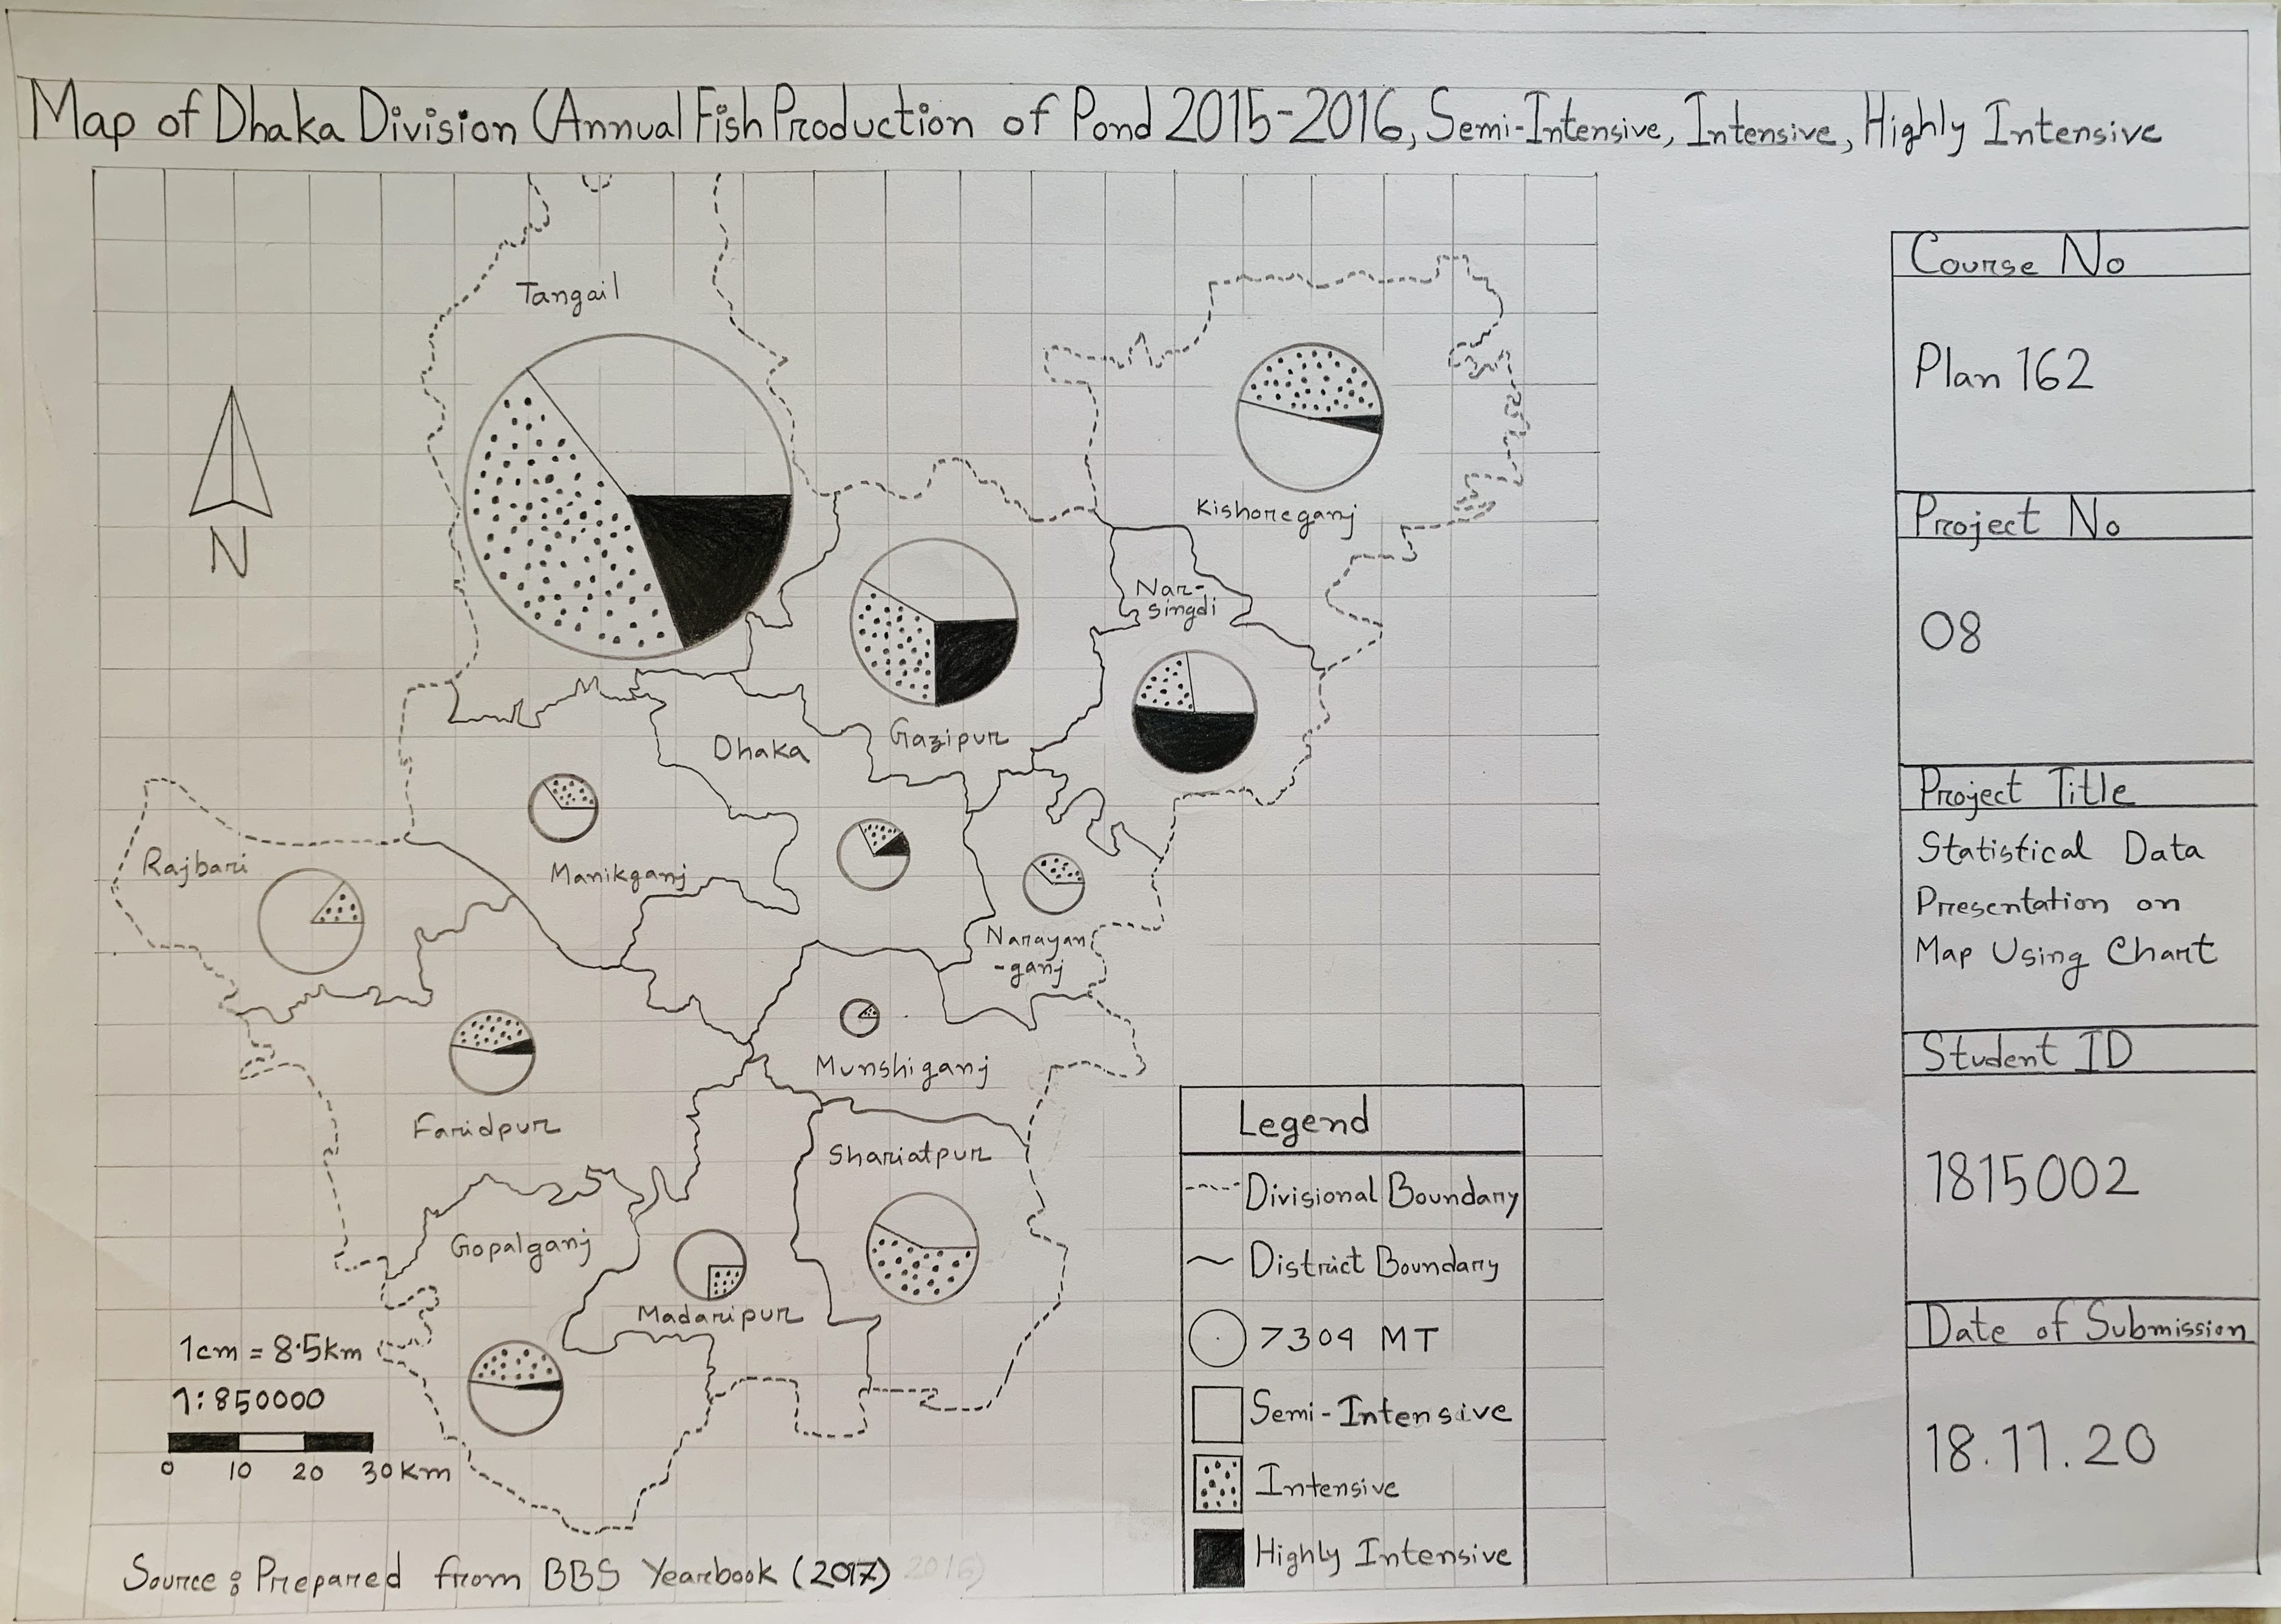 Map of Dhaka Division (Annual Fish Production of Pond 2015-2016, Semi-Intensive, Intensive, Highly Intensive
Tangail
Kishoreganj
Nar-
singdi
Gazipur
Dhaka
Manikganj
Rajbari
Narayan
-ganj
Munshiganj
Faridpur
Shariatpur
Gopalganj
Madaripur
N
1cm = 8.5km
1:850000
0 10 20 30 km
Source: Prepared from BBS Yearbook (2017)
2016)
Legend
Divisional Boundary
District Boundary
7304 MT
Semi-Intensive
Intensive
Highly Intensive
Course No
Plan 162
Project No
08
Project Title
Statistical Data
Presentation on
Map Using Chart
Student ID
1815002
Date of Submission
18.11.20